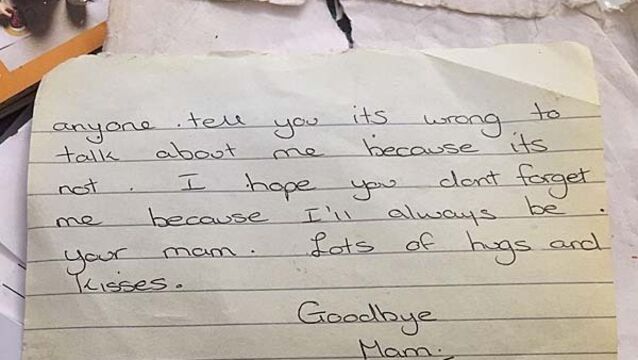 anyone tell you its wrong to
talk about me because its
not. I hope you dont forget
me because I'll always be
your mam. Lots of hugs and
kisses.
Goodbye
Mam.